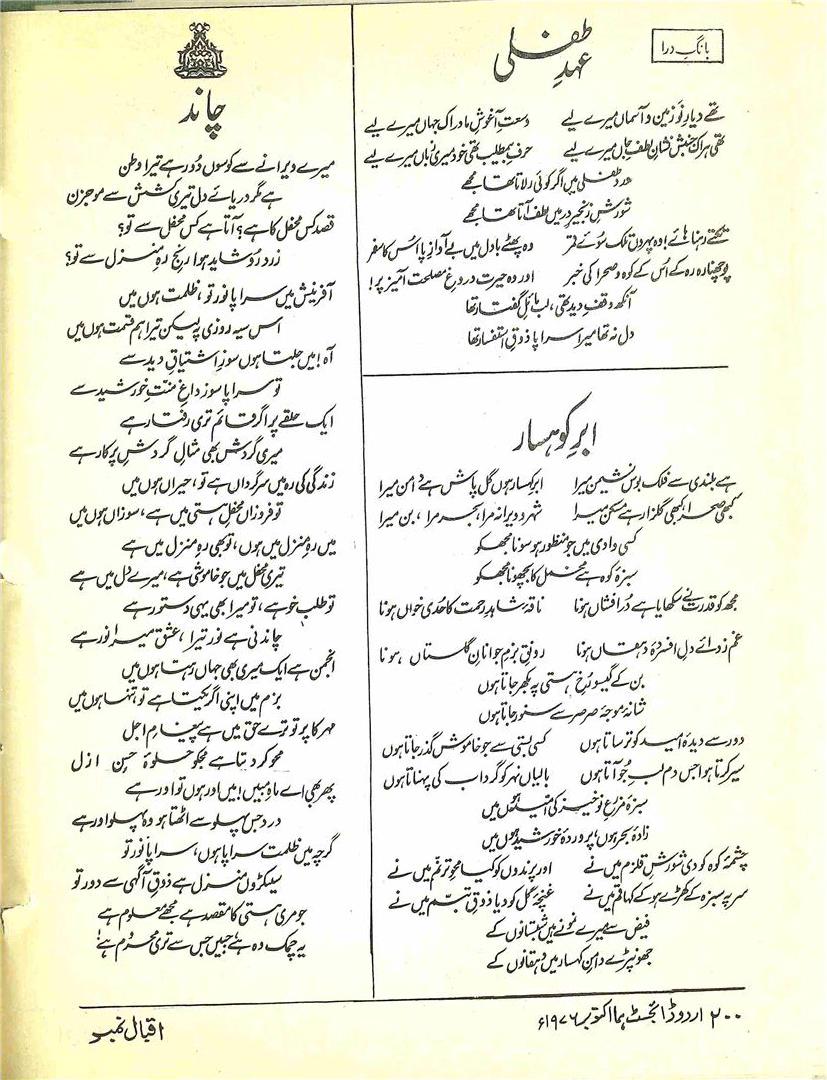 بانگِ درا
عہدِ طفلی
تھے دیارِ نَو زمین و آسماں میرے لیے وسعتِ آغوشِ مادر اک جہاں میرے لیے
تھی ہر اک جنبش نشانِ لطفِ جاں میرے لیے حرفِ بے مطلب تھی خود میری زباں میرے لیے
دردِ طفلی میں اگر کوئی رلاتا تھا مجھے
شورشِ زنجیرِ در میں لطف آتا تھا مجھے
تکتے رہنا ہائے! وہ پہروں تلک سُوئے قمر وہ پھٹے بادل میں بے آوازِ پا اس کا سفر
پوچھنا رہ رہ کے اُس کے کوہ و صحرا کی خبر اور وہ حیرت دروغِ مصلحت آمیز پر!
آنکھ وقفِ دید تھی، لب مائلِ گفتار تھا
دل نہ تھا میرا سراپا ذوقِ استفسار تھا
ابرِ کوہسار
ہے بلندی سے فلک بوس نشیمن میرا ابرِ کہسار ہوں گل پاش ہے دامن میرا
کبھی صحرا، کبھی گلزار ہے مسکن میرا شہر و ویرانہ مرا، بحر مرا، بن میرا
کسی وادی میں جو منظور ہو سونا مجھ کو
سبزۂ کوہ ہے مخمل کا بچھونا مجھ کو
مجھ کو قدرت نے سکھایا ہے دُر افشاں ہونا ناقۂ شاہدِ رحمت کا حُدی خواں ہونا
غم زدائے دلِ افسردۂ دہقاں ہونا رونقِ بزمِ جوانانِ گلستاں ہونا
بن کے گیسو رُخِ ہستی پہ بکھر جاتا ہوں
شانۂ موجۂ صرصر سے سنور جاتا ہوں
دور سے دیدۂ امید کو ترساتا ہوں کسی بستی سے جو خاموش گذر جاتا ہوں
سیر کرتا ہوا جس دم لبِ جُو آتا ہوں بالیاں نہر کو گرداب کی پہناتا ہوں
سبزۂ مزرعِ نوخیز کی امید ہوں میں
زادۂ بحر ہوں، پروردۂ خورشید ہوں میں
چشمۂ کوہ کو دی شورشِ قلزم میں نے اور پرندوں کو کیا محوِ ترنم میں نے
سر پہ سبزہ کے کھڑے ہو کے کہا قم میں نے غنچۂ گل کو دیا ذوقِ تبسم میں نے
فیض سے میرے نمونے ہیں شبستانوں کے
جھونپڑے دامنِ کہسار میں دہقانوں کے
چاند
میرے ویرانے سے کوسوں دُور ہے تیرا وطن
ہے مگر دریائے دل تیری کشش سے موجزن
قصد کس محفل کا ہے؟ آتا ہے کس محفل سے تو؟
زرد رُو شاید ہوا رنجِ رہِ منزل سے تو؟
آفرینش میں سراپا نور تو، ظلمت ہوں میں
اس سیہ روزی پہ لیکن تیرا ہم قسمت ہوں میں
آہ! میں جلتا ہوں سوزِ اشتیاقِ دید سے
تو سراپا سوز داغِ منتِ خورشید سے
ایک حلقے پر اگر قائم تری رفتار ہے
میری گردش بھی مثالِ گردشِ پرکار ہے
زندگی کی رہ میں سرگرداں ہے تو، حیراں ہوں میں
تو فروزاں محفلِ ہستی میں ہے، سوزاں ہوں میں
میں رہِ منزل میں ہوں، تو بھی رہِ منزل میں ہے
تیری محفل میں جو خاموشی ہے، میرے دل میں ہے
تو طلب خو ہے، تو میرا بھی یہی دستور ہے
چاندنی ہے نور تیرا، عشق میرا نور ہے
انجمن ہے ایک میری بھی جہاں رہتا ہوں میں
بزم میں اپنی اگر یکتا ہے تو تنہا ہوں میں
مہر کا پرتو ترے حق میں ہے پیغامِ اجل
محو کر دیتا ہے مجکو جلوۂ حسنِ ازل
پھر بھی اے ماہِ مبیں! میں اور ہوں تو اور ہے
درد جس پہلو سے اٹھتا ہو وہ پہلو اور ہے
گرچہ میں ظلمت سراپا ہوں، سراپا نور تو
سیکڑوں منزل ہے ذوقِ آگہی سے دور تو
جو مری ہستی کا مقصد ہے مجھے معلوم ہے
یہ چمک وہ ہے، جبیں جس سے تری محروم ہے!
۲۰۰ اردو ڈائجسٹ ہما اکتوبر ۱۹۷۶ء
اقبال نمبر